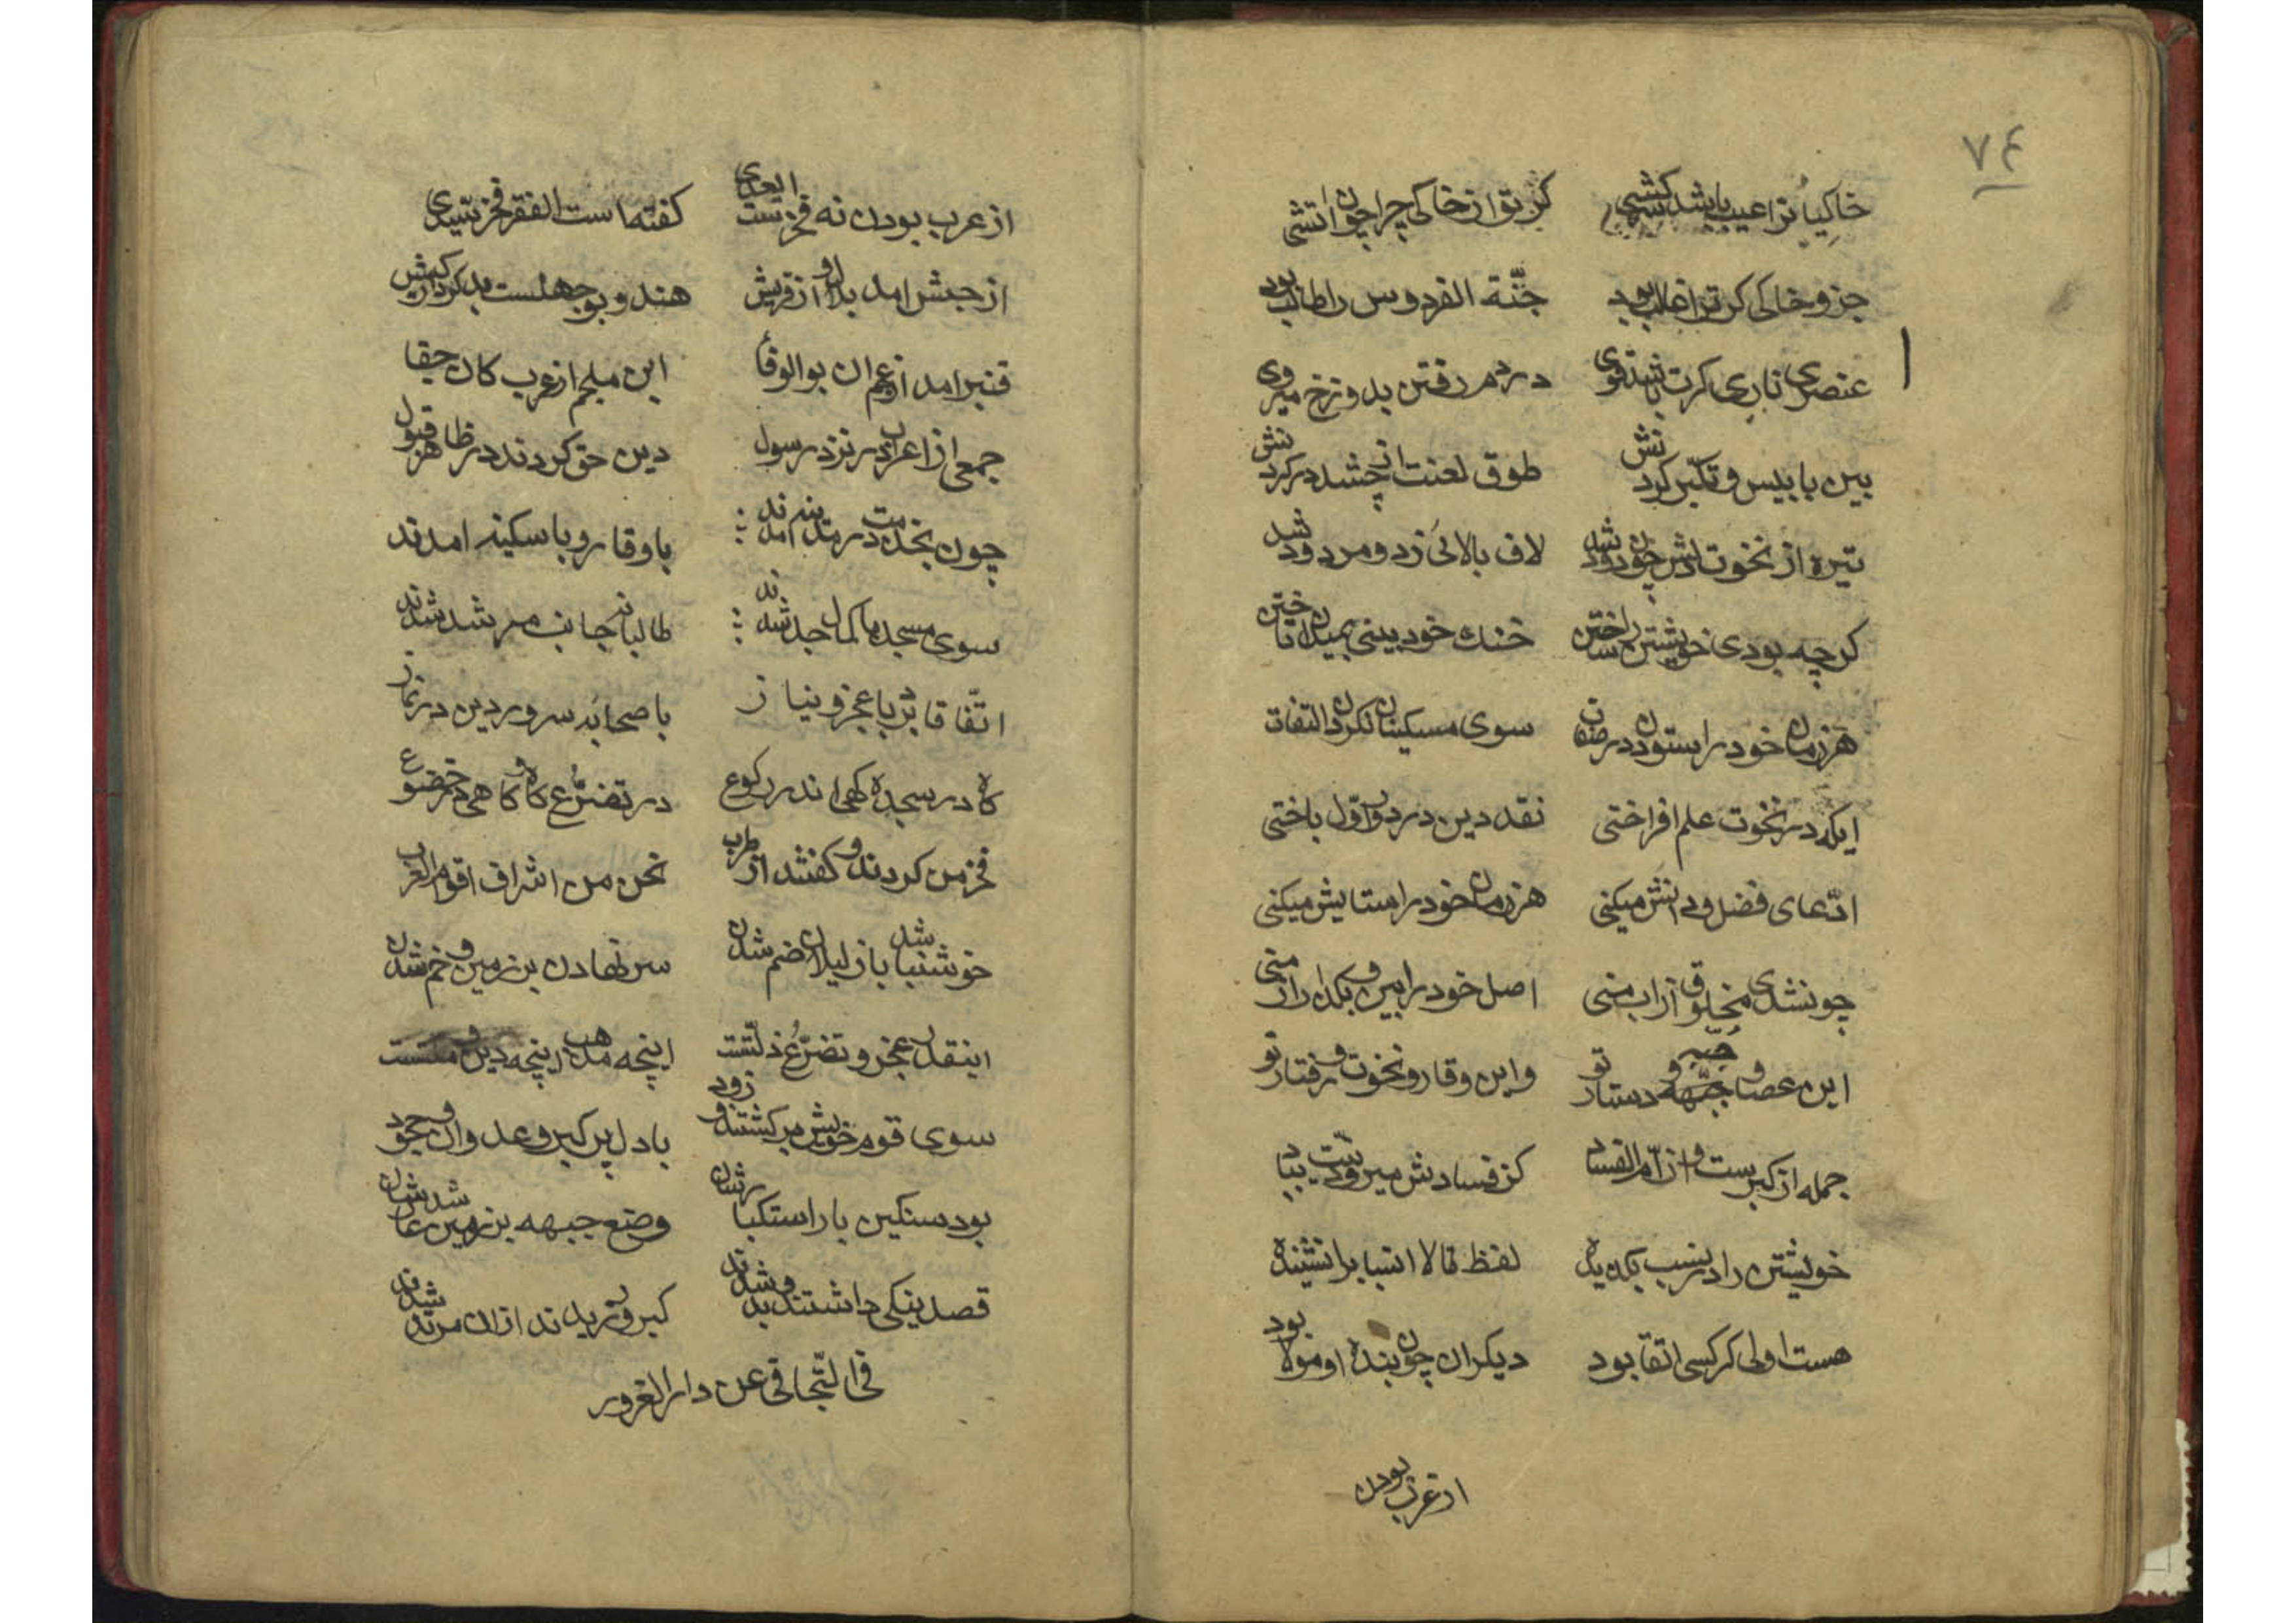 ۷۴
خاکیانرا عیب باشد سرکشی کر تو از خاکی چرا چون اتشی
جزو خاکی کر ترا غالب بود جنّة الفردوس را طالب بود
عنصری ناری کرت باشد قوی دردم رفتن بدوزخ میروی
بین بابلیس و تکبّر کردنش طوق لعنت از چه شد در کردنش
تیره از نخوت دلش چون دود شد لاف بالائی زد و مردود شد
کرچه بودی خویشتن را ساختن خنك خود بینی بمیدان تاختن
هر زمان خود را ستودن در صفات سوی مسکینان نکردن التفات
ایکه در نخوت علم افراختی نقد دین در دور اوّل باختی
ادّعای فضل و دانش میکنی هر زمان خود را ستایش میکنی
چونشدی مخلوق از اب منی اصل خود را بین و بکذار از منی
این عصا و جبّه و دستار تو واین وقار و نخوت و رفتار تو
جمله از کبرست و از امّ الفساد کز فسادش میرود دینت بباد
خویشتن را در نسب بکدیده لفظ تا لا انساب را نشنیده
هست اولی کر کسی اتقا بود دیکران چون بنده او مولا بود
از عرب بودن
از عرب بودن نه فخرست ای عدی کفته است الفقر فخر سیدی
از حبش امد بلال او از قریش هند و بوجهلست بد کردار کیش
قنبر امد از عجم ان بوالوفا ابن ملجم از عرب کان جفا
جمعی از اعراب در نزد رسول دین حق کردند در ظاهر قبول
چون بخدمت در مدینه امدند باوقار و با سکینه امدند
سوی مسجد با کمال جد شدند طالبانه جانب مرشد شدند
اتّفاقا بُد با عجز و نیاز با صحابه سرور دین در نماز
کاه در سجده کهی اندر رکوع در تضرّع کاه و کاهی در خضوع
فخر من کردند و کفتند از طرب نحن من اشراف اقوام العرب
خوش نباشد با ذلیلان ضم شدن سر نهادن بر زمین و خم شدن
اینقدر عجز و تضرّع ذلّتست اینچه مذهب اینچه دین و ملتست
سوی قوم خویش برکشتند زود با دل پر کبر و عدوان و جحود
بود سنکین بار استکبارشان وضع جبهه بر زمین شد عارشان
قصد نیکی داشتند و بد شدند کبر ورزیدند از ان مرتد شدند
فی التّجافی عن دار الغرور